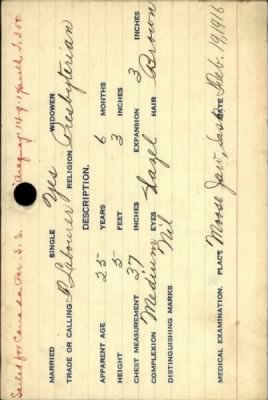 Sailed for Canada Per S.S.
MARRIED SINGLE Yes WIDOWER
TRADE OR CALLING Labourer RELIGION Presbyterian
DESCRIPTION.
APPARENT AGE 25 YEARS 6 MONTHS
HEIGHT 5 FEET 3 INCHES
CHEST MEASUREMENT 37 INCHES EXPANSION 3 INCHES
COMPLEXION Medium EYES Hazel HAIR Brown
DISTINGUISHING MARKS Nil
MEDICAL EXAMINATION. PLACE Moose Jaw, Sask DATE Feb. 19, 1916